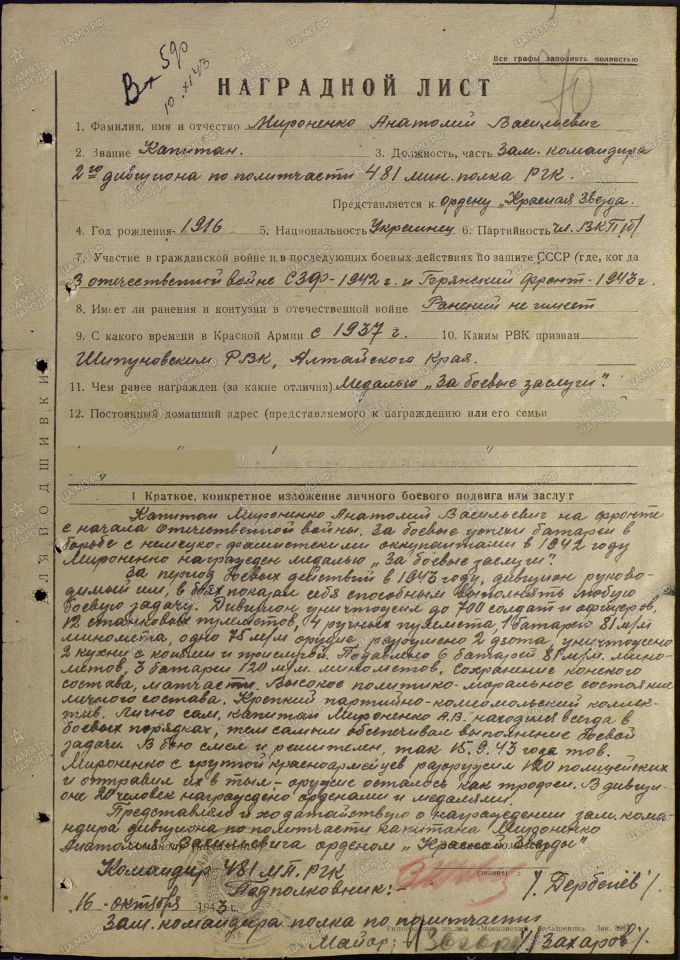 Все графы заполнять полностью
Вх 590
10.XI 43
70
НАГРАДНОЙ ЛИСТ
1. Фамилия, имя и отчество Мироненко Анатолий Васильевич
2. Звание Капитан. 3. Должность, часть Зам. командира
2го дивизиона по политчасти 481 мин. полка РГК.
Представляется к Ордену „Красная Звезда.
4. Год рождения- 1916 5. Национальность Украинец 6. Партийность чл. ВКП(б)
7. Участие в гражданской войне и в последующих боевых действиях по защите СССР (где, когда
В отечественной войне СЗФ-1942 г. и Брянский фронт-1943г.
8. Имеет ли ранения и контузии в отечественной войне Ранений не имеет
9. С какого времени в Красной Армии с 1937 г. 10. Каким РВК призван
Шипуновским РВК, Алтайского Края.
11. Чем ранее награжден (за какие отличия) Медалью „За боевые заслуги".
12. Постоянный домашний адрес (представляемого к награждению или его семьи
ДЛЯ ПОДШИВКИ
I Краткое, конкретное изложение личного боевого подвига или заслуг
Капитан Мироненко Анатолий Васильевич на фронте
с начала Отечественной войны. За боевые успехи батареи в
борьбе с немецко-фашистскими оккупантами в 1942 году
Мироненко награжден медалью „За боевые заслуги".
За период боевых действий в 1943 году, дивизион руково-
димый им, в боях показал себя способным выполнять любую
боевую задачу. Дивизион уничтожил до 700 солдат и офицеров,
12 станковых пулеметов, 4 ручных пулемета 1 батарею 81 м/м
миномета, одно 75 м/м орудие, разрушено 2 дзота, уничтожено
2 кухни с конями и прислугой. Подавлено 6 батарей 81 м/м. мино-
метов, 3 батареи 120 м/м. минометов, Сохранение конского
состава, матчасти. Высокое политико-моральное состояние
личного состава. Крепкий партийно-комсомольский коллек-
тив. Лично сам, капитан Мироненко А.В. находился всегда в
боевых порядках, тем самым обеспечивал выполнение боевой
задачи. В бою смел и решителен, так 15.9.43 года тов.
Мироненко с группой красноармейцев разоружил 120 полицейских
и отправил их в тыл- оружие осталось как трофеи. В дивизи-
оне 20 человек награждено орденами и медалями.
Представляя и ходатайствую о награждении зам. кома-
ндира дивизиона по политчасти капитана Мироненко
Анатолия Васильевича орденом „Красной Звезды"
Командир 481 МП. РГК
(звание)
Подполковник:- /. Дербенев/.
„16" октября 1943 г.
Зам. командира полка по политчасти
Майор: /Захаров/.